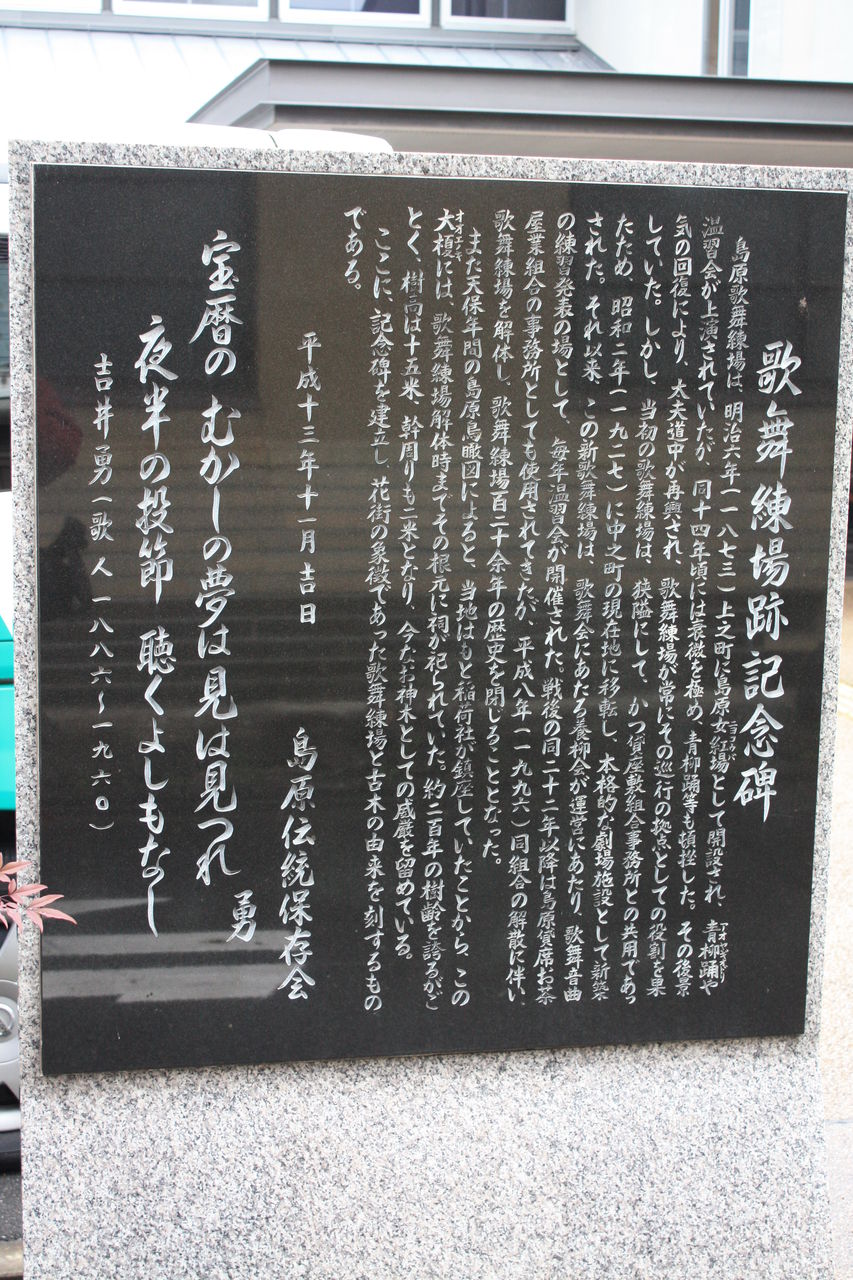 歌舞練場跡記念碑
島原歌舞練場は、明治六年(一八七三)上之町に島原女紅場として開設され、青柳踊や
温習会が上演されていたが、同十四年頃には衰微を極め、青柳踊等も頓挫した。その後景
気の回復により、太夫道中が再興され、歌舞練場が常にその巡行の拠点としての役割を果
していた。しかし、当初の歌舞練場は、狭隘にして、かつ貸座敷組合事務所との共用であっ
たため、昭和二年(一九二七)に中之町の現在地に移転し、本格的な劇場施設として新築
された。それ以来、この新歌舞練場は、歌舞会にあたる養柳会が運営にあたり、歌舞音曲
の練習発表の場として、毎年温習会が開催された。戦後の同二十二年以降は島原貸席お茶
屋業組合の事務所としても使用されてきたが、平成八年(一九九六)同組合の解散に伴い、
歌舞練場を解体し、歌舞練場百二十余年の歴史を閉じることとなった。
また天保年間の島原鳥瞰図によると、当地はもと稲荷社が鎮座していたことから、この
大榎には、歌舞練場解体時までその根元に祠が祀られていた。約二百年の樹齢を誇るがご
とく、樹高は十五米、幹周りも二米となり、今なお神木としての威厳を留めている。
ここに、記念碑を建立し、花街の象徴であった歌舞練場と古木の由来を刻するもの
である。
平成十三年十一月吉日
島原伝統保存会
宝暦の むかしの夢は 見は見つれ
夜半の投節 聴くよしもなし
勇
吉井勇(歌人 一八八六〜一九六〇)